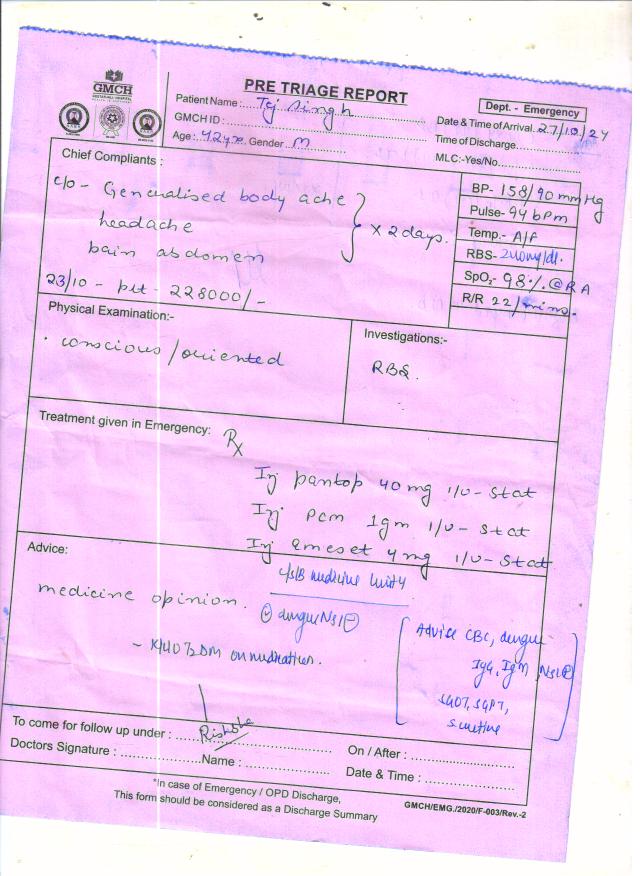 GMCH
PRE TRIAGE REPORT
Dept. - Emergency
Patient Name : Tej Singh
GMCH ID :
Age : 42 yr Gender M
Date & Time of Arrival. 27/10/24
Time of Discharge
MLC:-Yes/No
Chief Compliants :
c/o - Generalised body ache
headache
pain abdomen
x 2 days.
23/10 - plt - 228000/-
BP- 158/90 mmHg
Pulse- 94 bpm
Temp.- A/f
RBS- 240mg/dl.
SpO2- 98 % @ RA
R/R 22/mins.
Physical Examination:-
conscious/oriented
Investigations:-
RBS.
Treatment given in Emergency:
Rx
Inj pantop 40 mg i/v - Stat
Inj. pcm 1gm i/v - Stat
Inj Emeset 4 mg i/v - Stat
Advice:
c/s/B medicine Unit 4
medicine opinion.
dengue NS1 ⊖
- K/4/0 T2DM on medication.
Advice CBC, dengue
IgG, IgM, NS1
SGOT, SGPT,
To come for follow up under :
On / After :
Doctors Signature : Name :
Date & Time :
*In case of Emergency / OPD Discharge,
This form should be considered as a Discharge Summary
GMCH/EMG./2020/F-003/Rev.-2